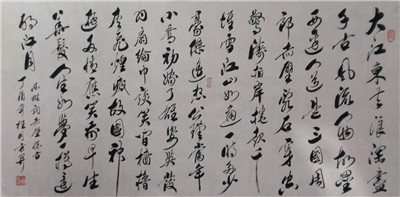 大江東去浪淘盡
千古風流人物故壘
西邊人道是三國周
郎赤壁亂石穿空
驚濤拍岸捲起千
堆雪江山如畫一時多少
豪傑遙想公瑾當年
小喬初嫁了雄姿英發
羽扇綸巾談笑間檣櫓
灰飛煙滅故國神
遊多情應笑我早生
華髮人生如夢一樽還
酹江月
蘇軾詞赤壁懷古
丁酉年